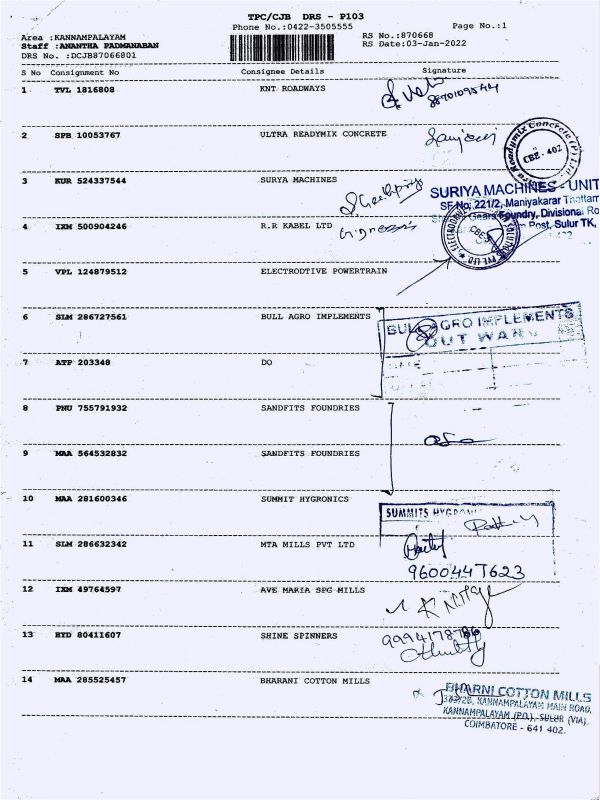 TPC/CJB DRS - P103
Phone No.:0422-3505555
Page No.:1
Area :KANNAMPALAYAM
RS No.:870668
Staff :ANANTHA PADMANABAN
RS Date:03-Jan-2022
DRS No. :DCJB87066801
S No Consignment No Consignee Details Signature
1 TVL 1816808 KNT ROADWAYS
2 SPB 10053767 ULTRA READYMIX CONCRETE
CBE - 402
3 KUR 524337544 SURYA MACHINES
SURIYA MACHINES - UNIT
SF No; 221/2, Maniyakarar Thottam
Gears Foundry, Divisional Ro
Post, Sulur TK,
4 IXM 500904246 R.R KABEL LTD
5 VPL 124879512 ELECTRODTIVE POWERTRAIN
6 SLM 286727561 BULL AGRO IMPLEMENTS
BULL AGRO IMPLEMENTS
OUT WARD
7 ATP 203348 DO
8 PNU 755791932 SANDFITS FOUNDRIES
9 MAA 564532832 SANDFITS FOUNDRIES
10 MAA 281600346 SUMMIT HYGRONICS
SUMMITS HYGRON
11 SLM 286632342 MTA MILLS PVT LTD
9600447623
12 IXM 49764597 AVE MARIA SPG MILLS
13 HYD 80411607 SHINE SPINNERS
14 MAA 285525457 BHARANI COTTON MILLS
BHARNI COTTON MILLS
383/2B, KANNAMPALAYAM MAIN ROAD,
KANNAMPALAYAM (P.O.), SULUR (VIA),
COIMBATORE - 641 402.